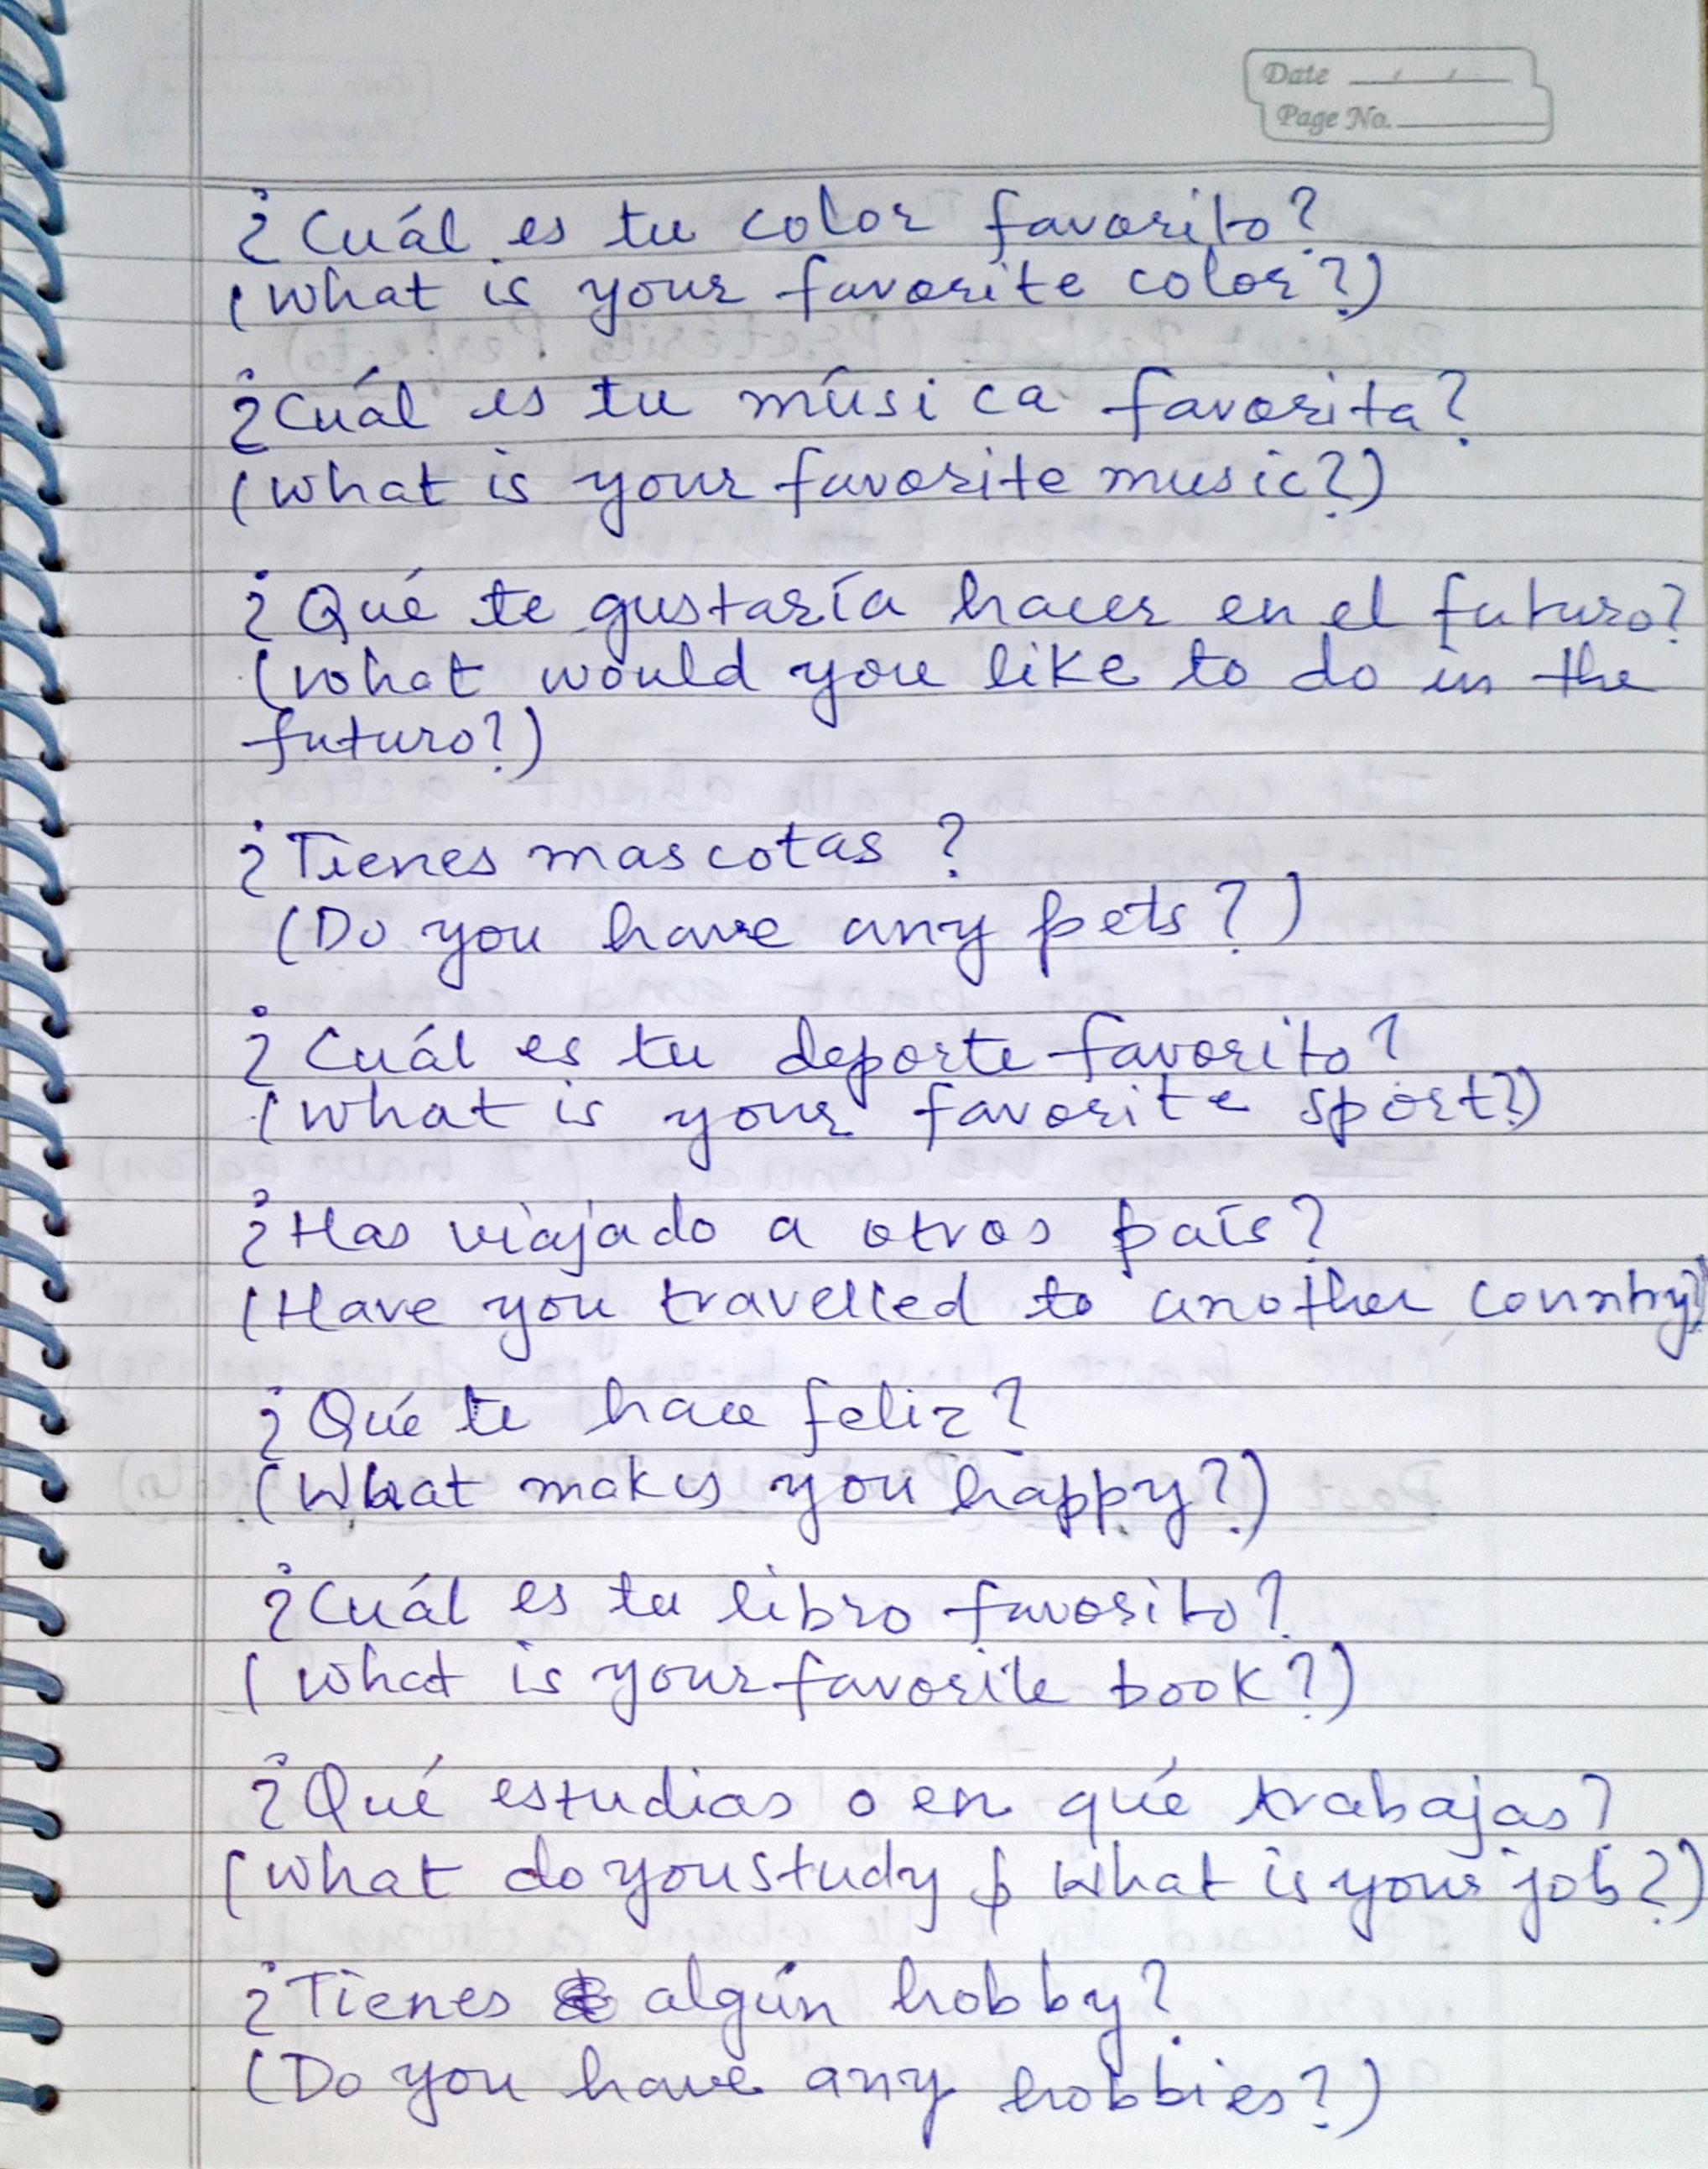 Date
Page No.
¿Cuál es tu color favorito?
(What is your favorite color?)
¿Cuál es tu música favorita?
(What is your favorite music?)
¿Qué te gustaría hacer en el futuro?
(What would you like to do in the
futuro?)
¿Tienes mascotas?
(Do you have any pets?)
¿Cuál es tu deporte favorito?
(What is your favorite sport?)
¿Has viajado a otros país?
(Have you travelled to another country?)
¿Qué te hace feliz?
(What makes you happy?)
¿Cuál es tu libro favorito?
(What is your favorite book?)
¿Qué estudias o en qué trabajas?
(What do you study / What is your job?)
¿Tienes algún hobby?
(Do you have any hobbies?)